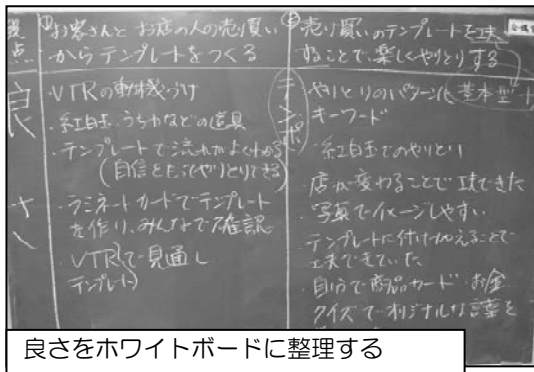 視点
①お客さんとお店の人の売り買い
からテンプレートをつくる
良さ
・VTRの動機づけ
・紅白玉、うちわなどの道具
・テンプレートで流れがよくわかる
(自信をもってやりとりできる)
・ラミネートカードでテンプレート
を作り、みんなで確認
・VTR
テンプレート
で見通し
②売り買いのテンプレートを工夫
することで、楽しくやりとりする
テンポ
・やりとりのパターン化 基本型
キーワード
・紅白玉でのやりとり
・店が変わることで工夫できた
・写真でイメージしやすい
・テンプレートに付け加えることで
工夫できていた
・自分で商品カード・お金
クイズでオリジナルな言葉を
良さをホワイトボードに整理する